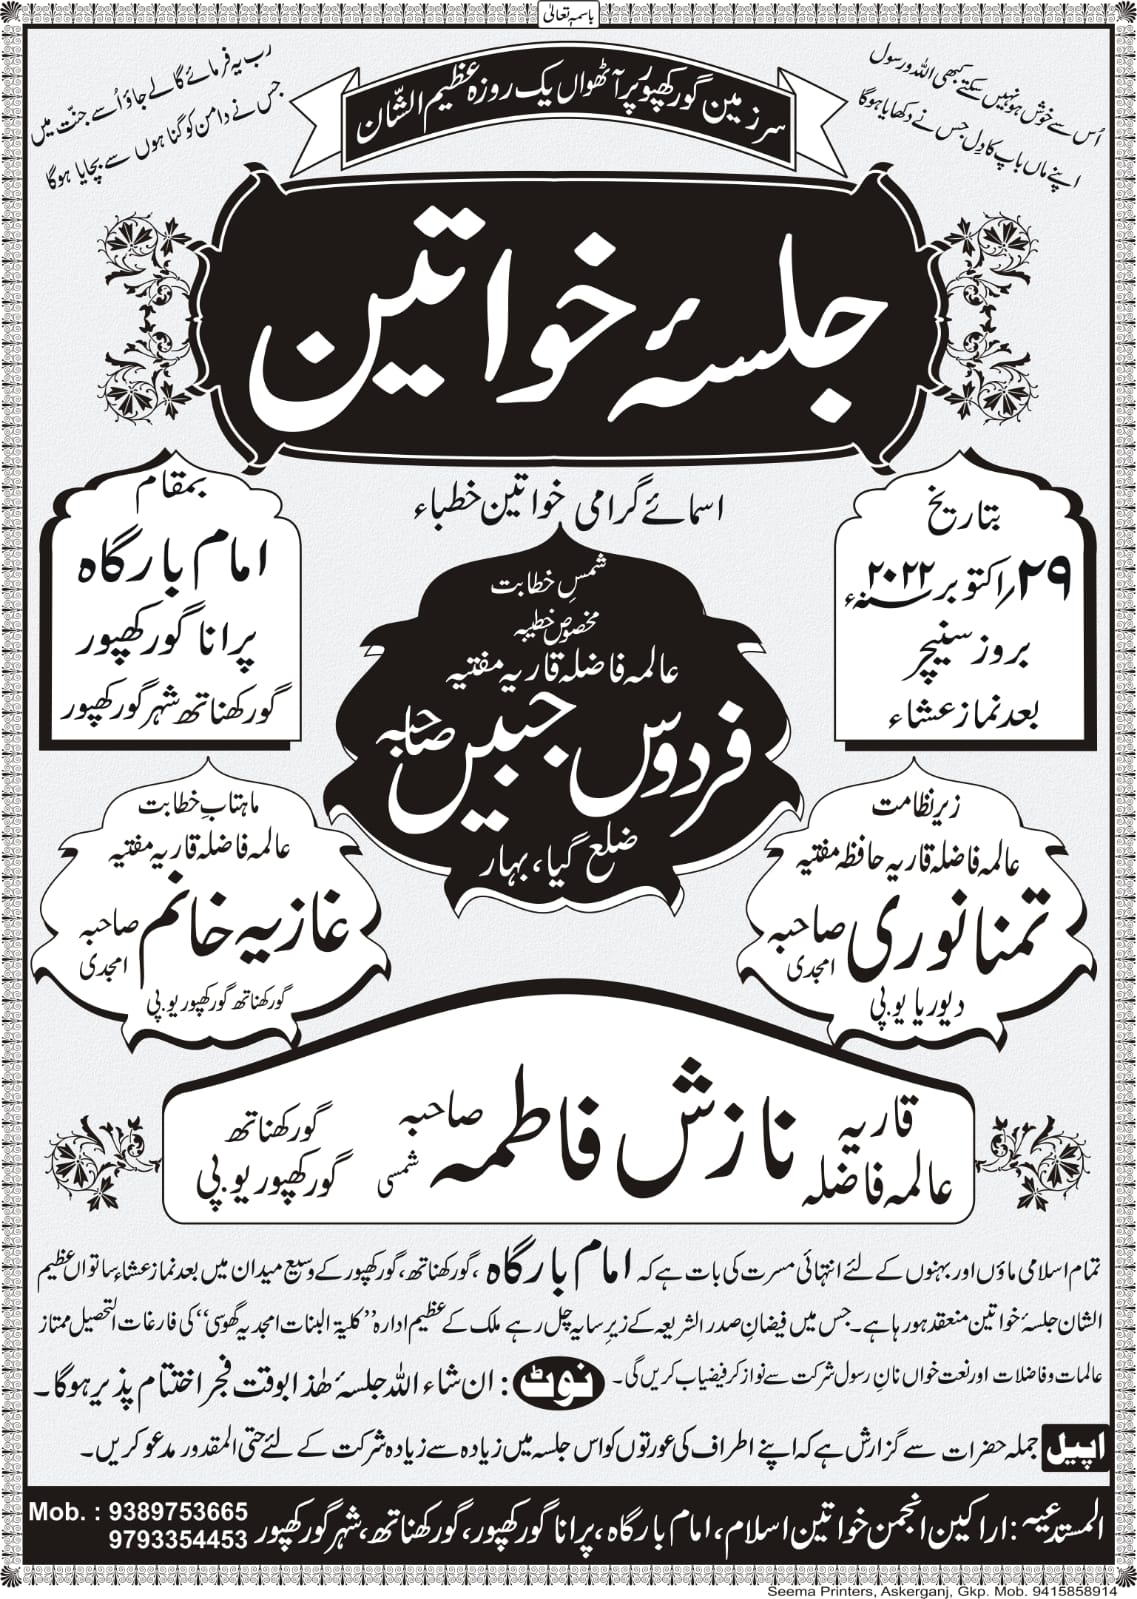 باسمہ تعالیٰ
اُس سے خوش ہو نہیں سکتے کبھی اللہ و رسول
اپنے ماں باپ کا دِل جس نے دکھایا ہوگا
رب یہ فرمائے گا لے جاؤ اُسے جنّت میں
جس نے دامن کو گناہوں سے بچایا ہوگا
سرزمین گورکھپور پر آٹھواں یک روزہ عظیم الشّان
جلسۂ خواتین
بتاریخ
۲۹؍اکتوبر ۲۰۲۲ء
بروز سنیچر
بعد نماز عشاء
بمقام
امام بارگاہ
پرانا گورکھپور
گورکھناتھ شہر گورکھپور
اسمائے گرامی خواتین خطباء
شمسِ خطابت
مخصوص خطیبہ
عالمہ فاضلہ قاریہ مفتیہ
فردوس جبیں صاحبہ
ضلع گیا، بہار
زیر نظامت
عالمہ فاضلہ قاریہ حافظہ مفتیہ
تمنا نوری صاحبہ امجدی
دیوریا یو.پی
ماہتابِ خطابت
عالمہ فاضلہ قاریہ مفتیہ
غازیہ خانم صاحبہ امجدی
گورکھناتھ گورکھپور یو.پی
قاریہ عالمہ فاضلہ نازش فاطمہ صاحبہ شمسی گورکھناتھ گورکھپور یو.پی
تمام اسلامی ماؤں اور بہنوں کے لئے انتہائی مسرت کی بات ہے کہ امام بارگاہ، گورکھناتھ، گورکھپور کے وسیع میدان میں بعد نماز عشاء ساتواں عظیم
الشان جلسۂ خواتین منعقد ہو رہا ہے۔ جس میں فیضانِ صدر الشریعہ کے زیرِ سایہ چل رہے ملک کے عظیم ادارہ ”کلیۃ البنات امجدیہ گھوسی“ کی فارغات التحصیل ممتاز
عالمات و فاضلات اور نعت خواں نانِ رسول شرکت سے نواز کر فیضیاب کریں گی۔ نوٹ : ان شاء اللہ جلسۂ ھٰذا بوقت فجر اختتام پذیر ہوگا۔
اپیل جملہ حضرات سے گزارش ہے کہ اپنے اطراف کی عورتوں کو اس جلسہ میں زیادہ سے زیادہ شرکت کے لئے حتی المقدور مدعو کریں۔
المستدعیہ : اراکین انجمن خواتین اسلام، امام بارگاہ، پرانا گورکھپور، گورکھناتھ، شہر گورکھپور
Mob. : 9389753665
9793354453
Seema Printers, Askerganj, Gkp. Mob. 9415858914